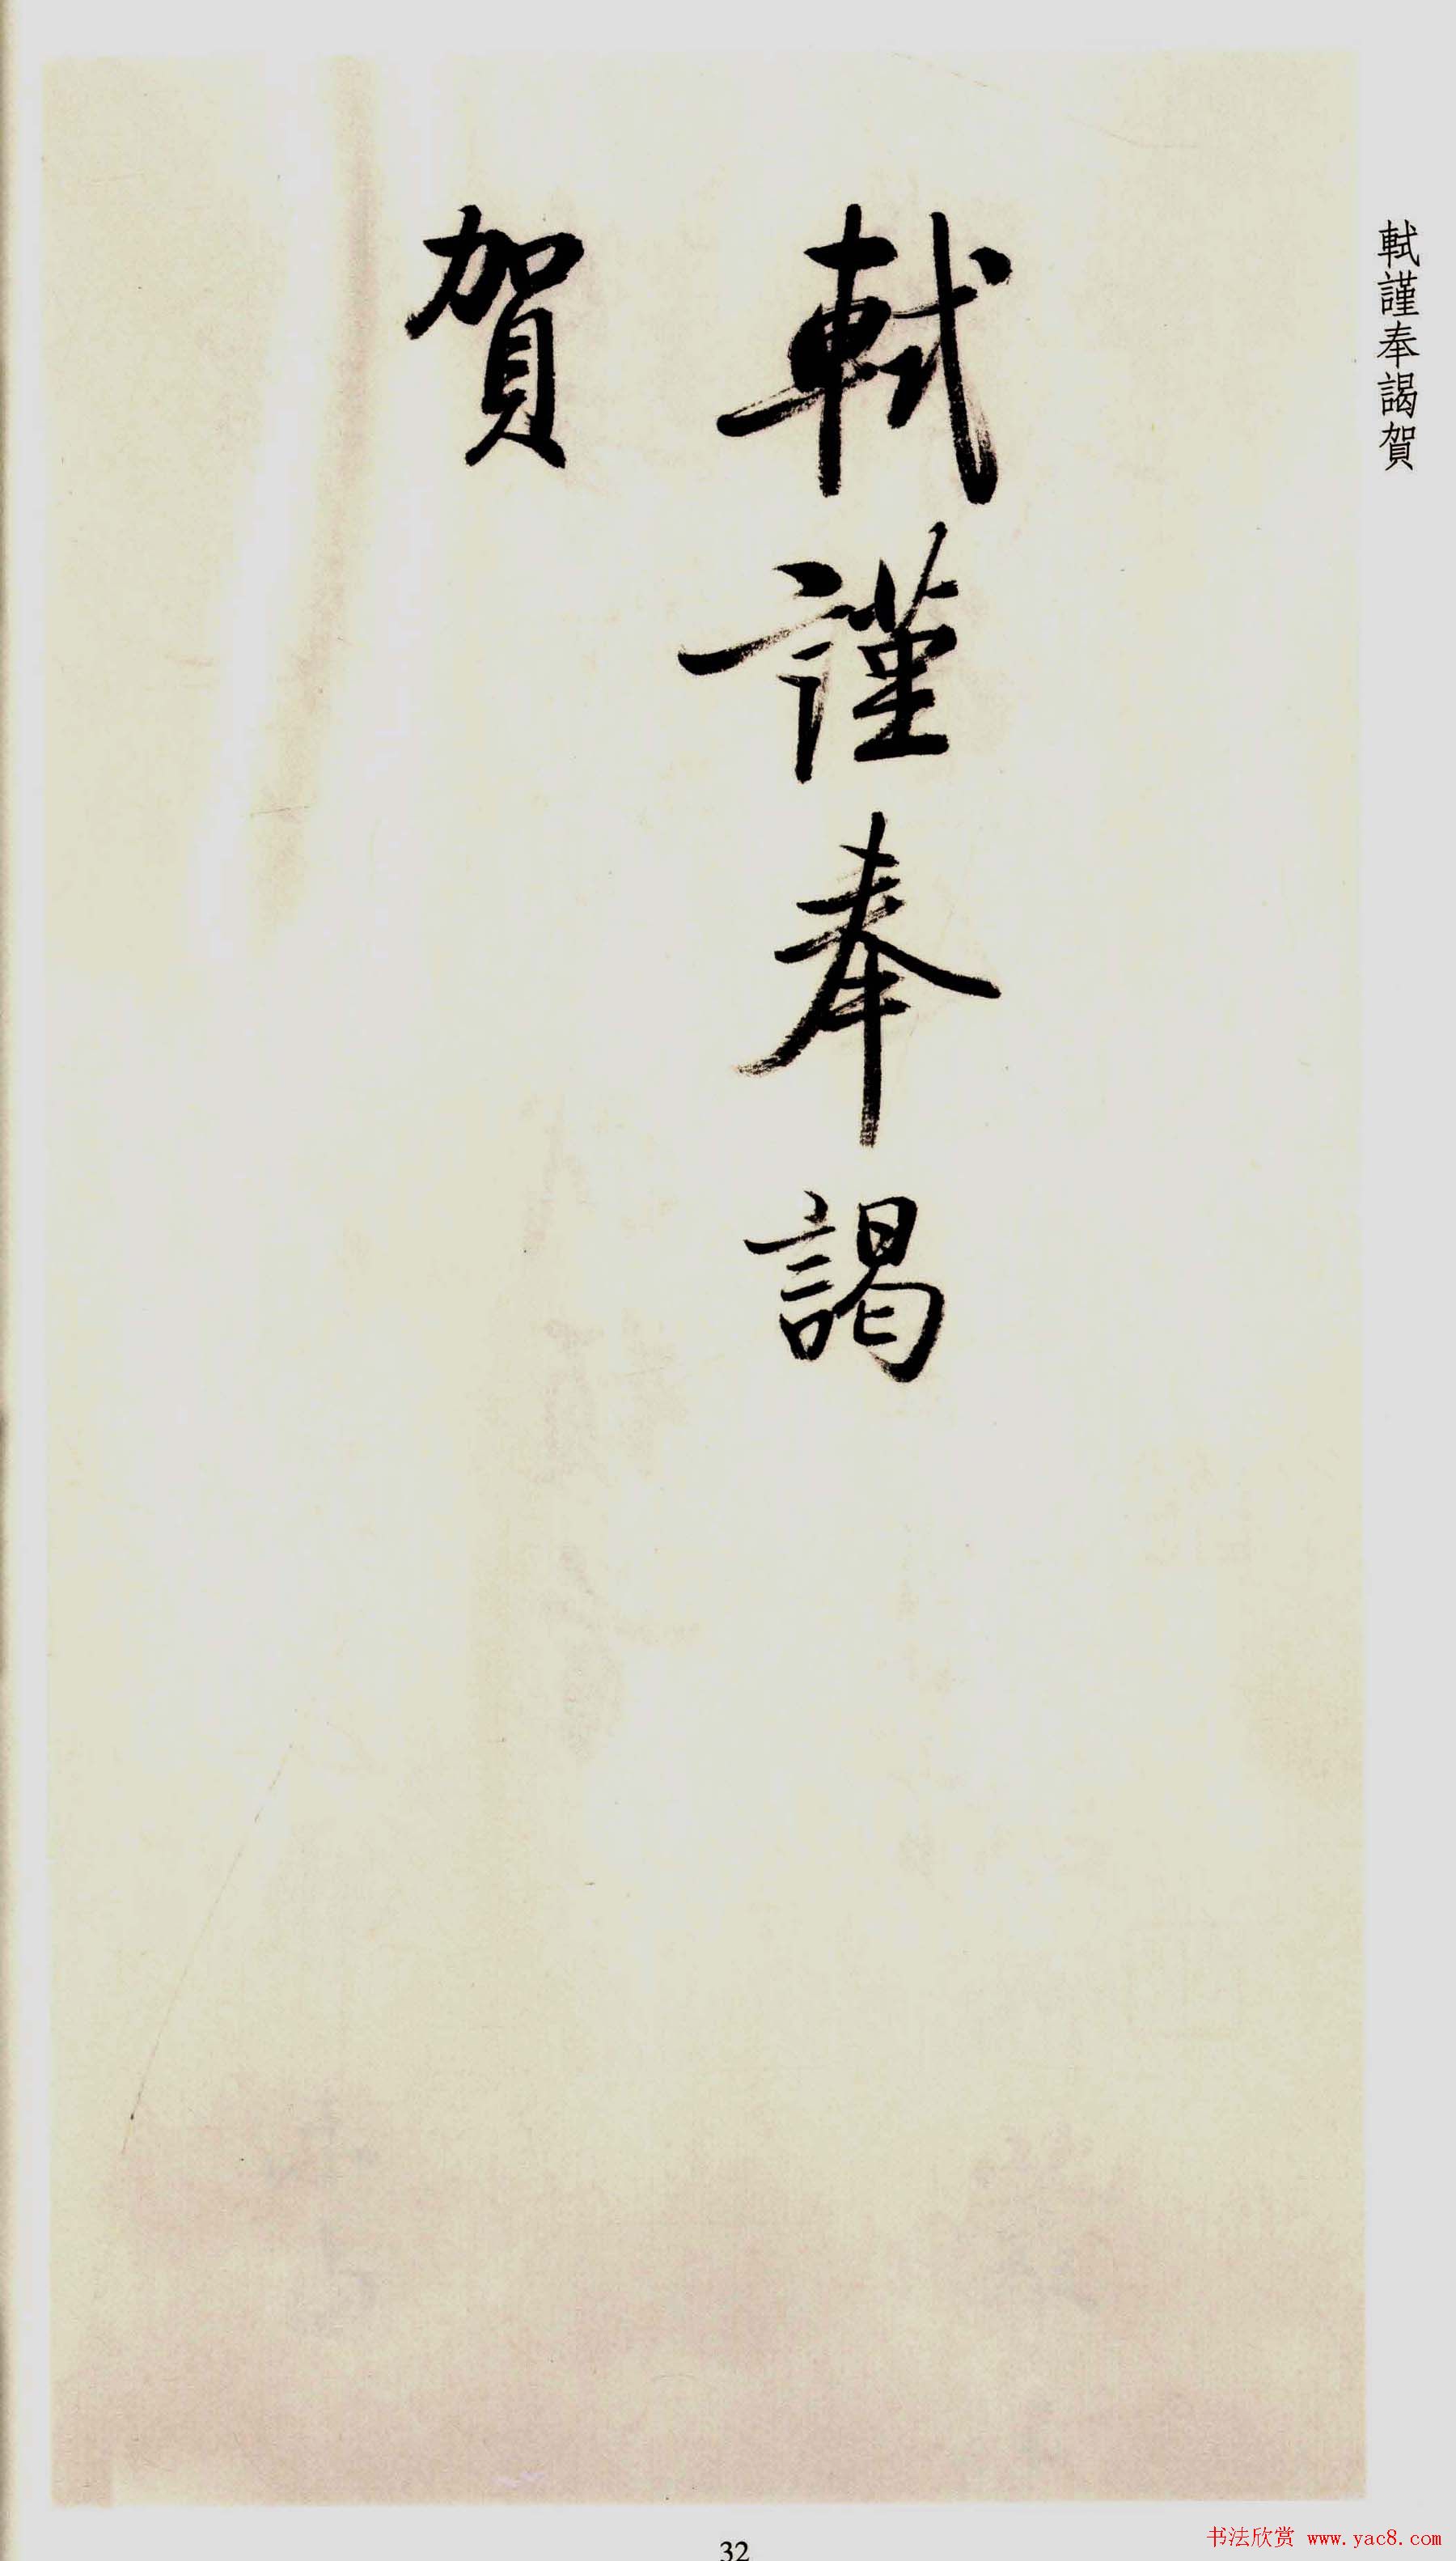 軾謹奉謁賀
軾謹奉謁
賀
32
书法欣赏 www.yac8.com